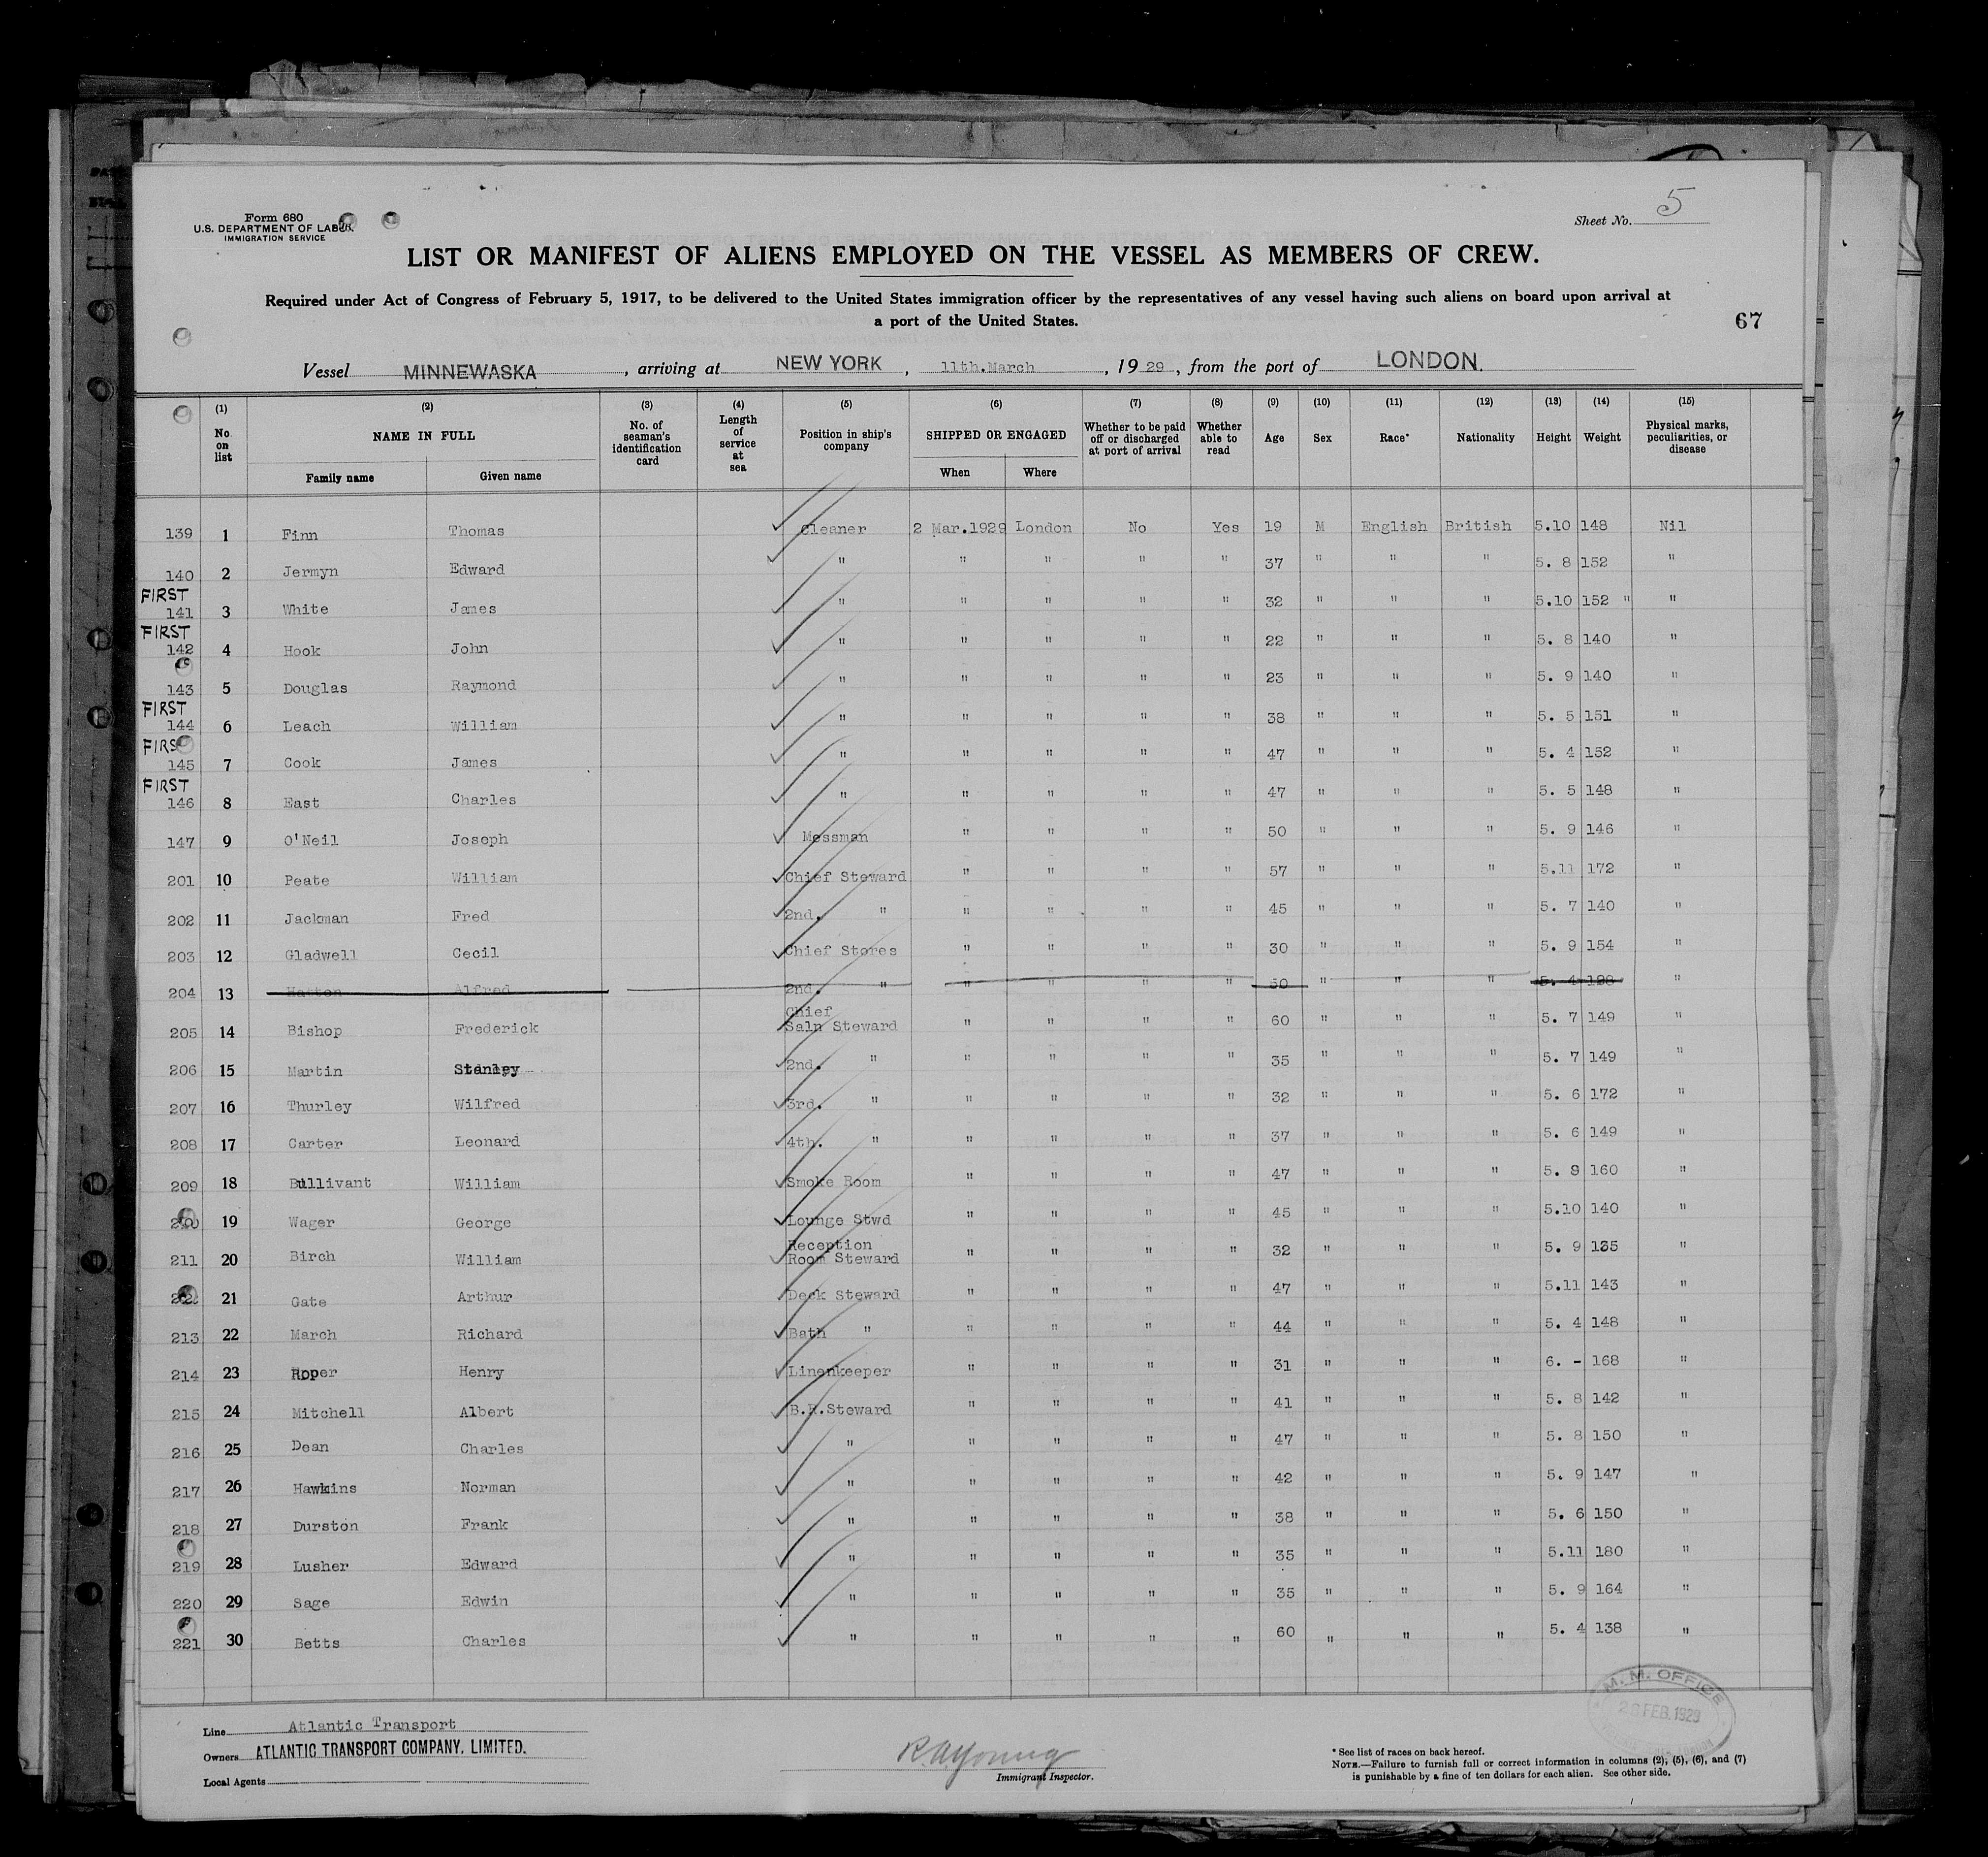 Form 680
U.S. DEPARTMENT OF LABOR
IMMIGRATION SERVICE
Sheet No. 5
LIST OR MANIFEST OF ALIENS EMPLOYED ON THE VESSEL AS MEMBERS OF CREW.
Required under Act of Congress of February 5, 1917, to be delivered to the United States immigration officer by the representatives of any vessel having such aliens on board upon arrival at
a port of the United States.
67
Vessel MINNEWASKA, arriving at NEW YORK, 11th.March, 1929, from the port of LONDON.
(1) (2) (3) (4) (5) (6) (7) (8) (9) (10) (11) (12) (13) (14) (15)
No. on list NAME IN FULL No. of seaman's identification card Length of service at sea Position in ship's company SHIPPED OR ENGAGED Whether to be paid off or discharged at port of arrival Whether able to read Age Sex Race* Nationality Height Weight Physical marks, peculiarities, or disease
Family name Given name When Where
139 1 Finn Thomas Cleaner 2 Mar.1929 London No Yes 19 M English British 5.10 148 Nil
140 2 Jermyn Edward " " " " " 37 " " " 5. 8 152 "
FIRST
141 3 White James " " " " " 32 " " " 5.10 152 " "
FIRST
142 4 Hook John " " " " " 22 " " " 5. 8 140 "
143 5 Douglas Raymond " " " " " 23 " " " 5. 9 140 "
FIRST
144 6 Leach William " " " " " 38 " " " 5. 5 151 "
FIRST
145 7 Cook James " " " " " 47 " " " 5. 4 152 "
FIRST
146 8 East Charles " " " " " 47 " " " 5. 5 148 "
147 9 O'Neil Joseph Messman " " " " 50 " " " 5. 9 146 "
201 10 Peate William Chief Steward " " " " 57 " " " 5.11 172 "
202 11 Jackman Fred 2nd. " " " " " 45 " " " 5. 7 140 "
203 12 Gladwell Cecil Chief Stores " " " " 30 " " " 5. 9 154 "
204 13 Hatton Alfred 2nd. " " " " " " " " 5. 4 "
205 14 Bishop Frederick Chief Saln Steward " " " " 60 " " " 5. 7 149 "
206 15 Martin Stanley 2nd. " " " " " 35 " " " 5. 7 149 "
207 16 Thurley Wilfred 3rd. " " " " " 32 " " " 5. 6 172 "
208 17 Carter Leonard 4th. " " " " " 37 " " " 5. 6 149 "
209 18 Bullivant William Smoke Room " " " " 47 " " " 5. 9 160 "
210 19 Wager George Lounge Stwd " " " " 45 " " " 5.10 140 "
211 20 Birch William Reception Room Steward " " " " 32 " " " 5. 9 135 "
212 21 Gate Arthur Deck Steward " " " " 47 " " " 5.11 143 "
213 22 March Richard Bath " " " " " 44 " " " 5. 4 148 "
214 23 Roper Henry Linenkeeper " " " " 31 " " " 6. - 168 "
215 24 Mitchell Albert B.R.Steward " " " " 41 " " " 5. 8 142 "
216 25 Dean Charles " " " " " 47 " " " 5. 8 150 "
217 26 Hawkins Norman " " " " " 42 " " " 5. 9 147 "
218 27 Durston Frank " " " " " 38 " " " 5. 6 150 "
219 28 Lusher Edward " " " " " 35 " " " 5.11 180 "
220 29 Sage Edwin " " " " " 35 " " " 5. 9 164 "
221 30 Betts Charles " " " " " 60 " " " 5. 4 138 "
M. M. OFFICE
26 FEB.1929
Line Atlantic Transport
Owners ATLANTIC TRANSPORT COMPANY. LIMITED.
Local Agents
R.A.Young
Immigrant Inspector.
* See list of races on back hereof.
NOTE.—Failure to furnish full or correct information in columns (2), (5), (6), and (7)
is punishable by a fine of ten dollars for each alien. See other side.